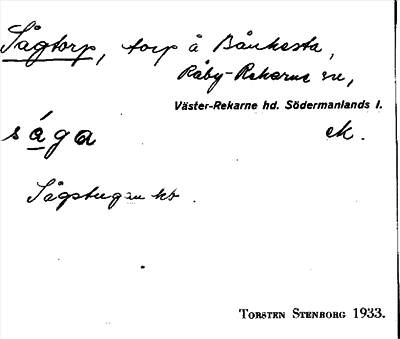 Sågtorp, torp å Bånkesta,
Råby-Rekarne sn,
Väster-Rekarne hd. Södermanlands l.
såga ek.
Sågstugan kb
TORSTEN STENBORG 1933.